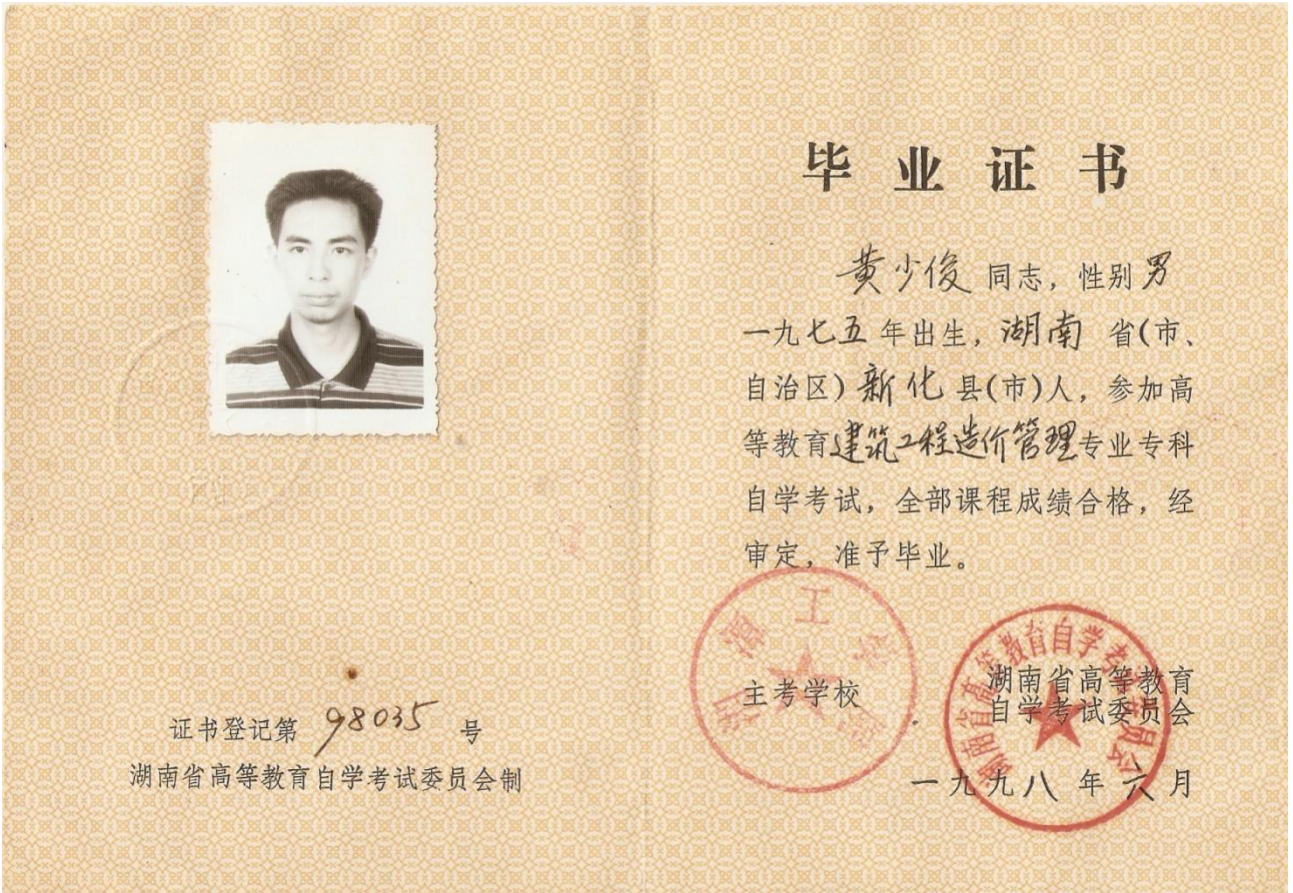 证书登记第 98035 号
湖南省高等教育自学考试委员会制
毕业证书
黄少俊同志，性别男
一九七五年出生，湖南省(市、
自治区)新化县(市)人，参加高
等教育建筑工程造价管理专业专科
自学考试，全部课程成绩合格，经
审定，准予毕业。
主考学校
湖南省高等教育
自学考试委员会
湖南省高等教育自学考试委员会
一九九八年六月